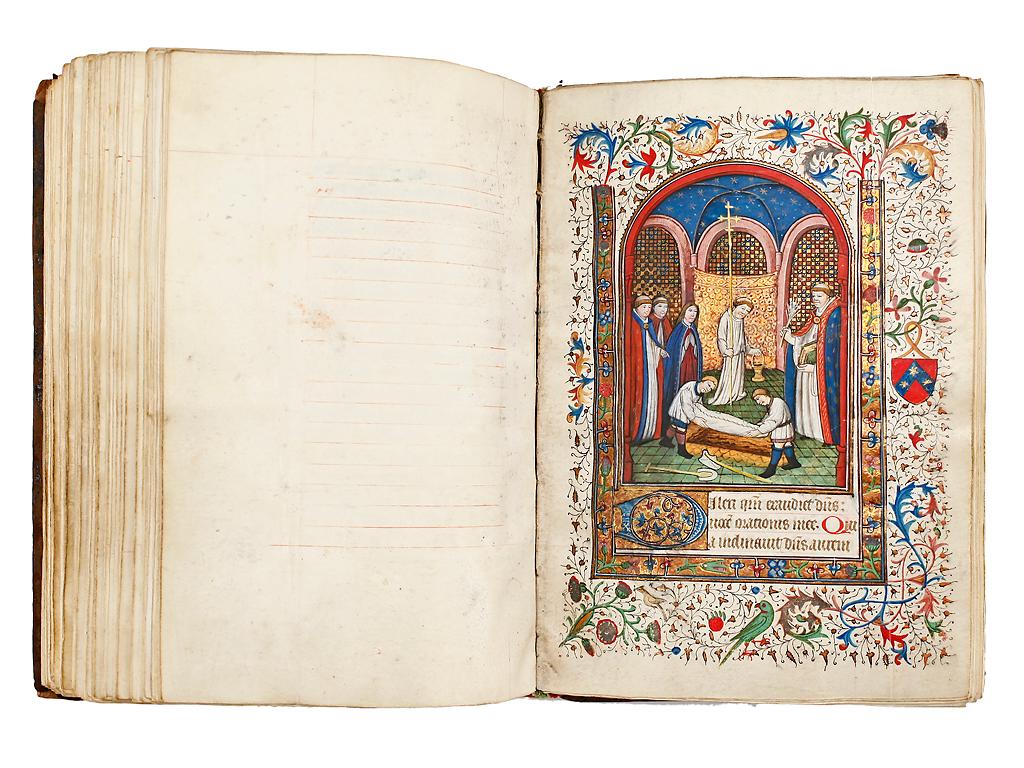 Dilexi qm̃ exaudiet dñs:
vocẽ orationis mee. Qui
a inclinauit dñs aurem